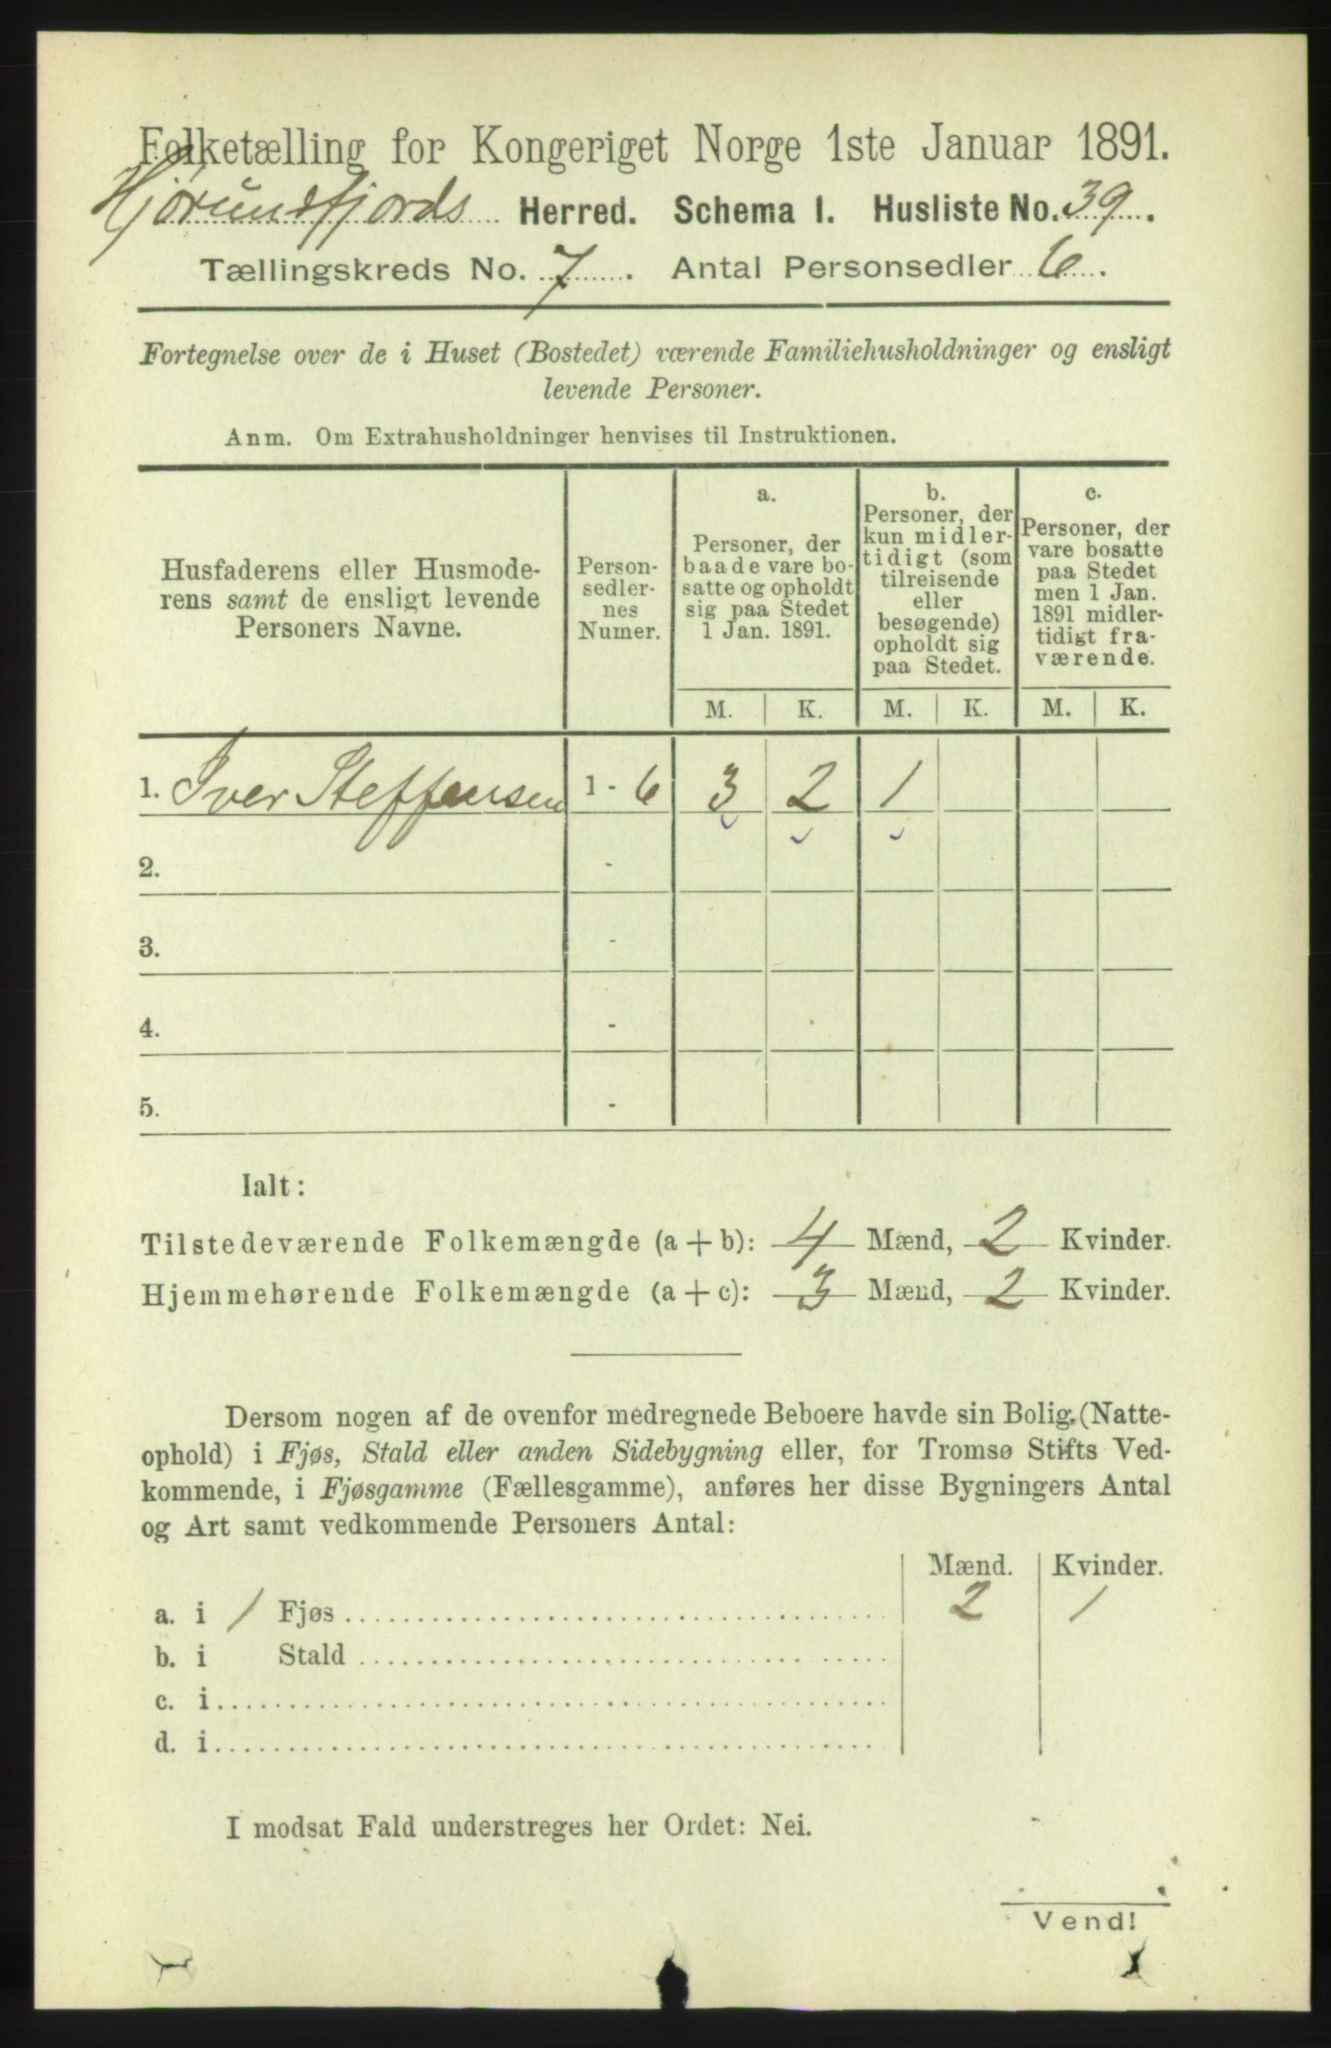 Folketælling for Kongeriget Norge 1ste Januar 1891.
Hjørundfjords Herred. Schema I. Husliste No. 39.
Tællingskreds No. 7. Antal Personsedler 6.
Fortegnelse over de i Huset (Bostedet) værende Familiehusholdninger og ensligt
levende Personer.
Anm. Om Extrahusholdninger henvises til Instruktionen.
Husfaderens eller Husmode-
rens samt de ensligt levende
Personers Navne.
Person-
sedler-
nes
Numer.
a.
Personer, der
baade vare bo-
satte og opholdt
sig paa Stedet
1 Jan. 1891.
b.
Personer, der
kun midler-
tidigt (som
tilreisende
eller
besøgende)
opholdt sig
paa Stedet.
c.
Personer, der
vare bosatte
paa Stedet
men 1 Jan.
1891 midler-
tidigt fra-
værende.
M. K. M. K. M. K.
1. Iver Steffensen 1 - 6 3 2 1
2. -
3. -
4. -
5. -
Ialt:
Tilstedeværende Folkemængde (a + b): 4 Mænd, 2 Kvinder.
Hjemmehørende Folkemængde (a + c): 3 Mænd, 2 Kvinder.
Dersom nogen af de ovenfor medregnede Beboere havde sin Bolig (Natte-
ophold) i Fjøs, Stald eller anden Sidebygning eller, for Tromsø Stifts Ved-
kommende, i Fjøsgamme (Fællesgamme), anføres her disse Bygningers Antal
og Art samt vedkommende Personers Antal:
Mænd. Kvinder.
a. i 1 Fjøs 2 1
b. i Stald
c. i
d. i
I modsat Fald understreges her Ordet: Nei.
Vend!